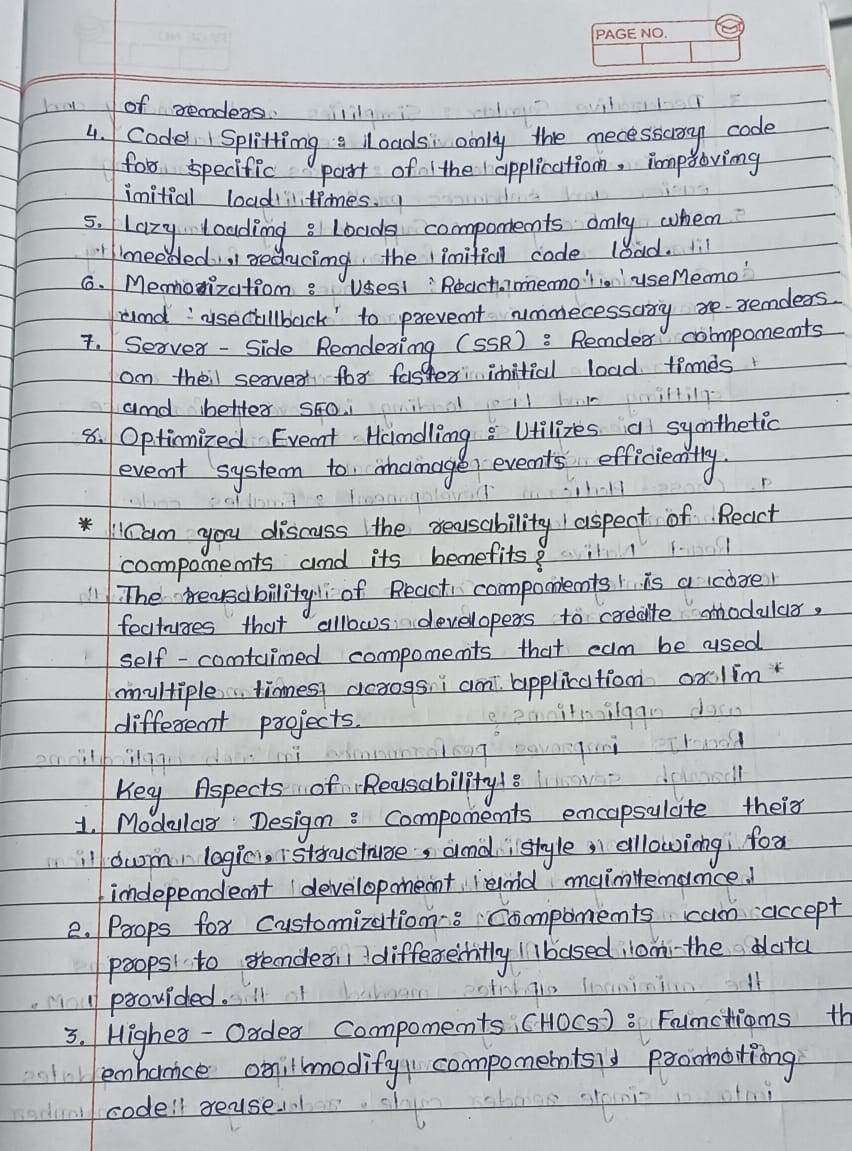 PAGE NO.
of renders.
4. Code Splitting : Loads only the necessary code
for specific part of the application, improving
initial load times.
5. Lazy Loading : Loads components only when
needed, reducing the initial code load.
6. Memorization : Uses 'React.memo', 'useMemo'
and 'usecallback' to prevent unnecessary re-renders
7. Server - Side Rendering (SSR) : Render components
on the server for faster initial load times
and better SEO.
8. Optimized Event Handling : Utilizes a synthetic
event system to manage events efficiently.
* Can you discuss the reusability aspect of React
components and its benefits?
The reusability of React components is a core
features that allows developers to create modular,
self - contained components that can be used
multiple times across an application or in *
different projects.
Key Aspects of Reusability :
1. Modular Design : Components encapsulate their
own logic, structure, and style, allowing for
independent development and maintenance.
2. Props for Customization : Components can accept
props to render differently based on the data
provided.
3. Higher - Order Components (HOCs) : Functions th
enhance or modify components, promoting
code reuse.